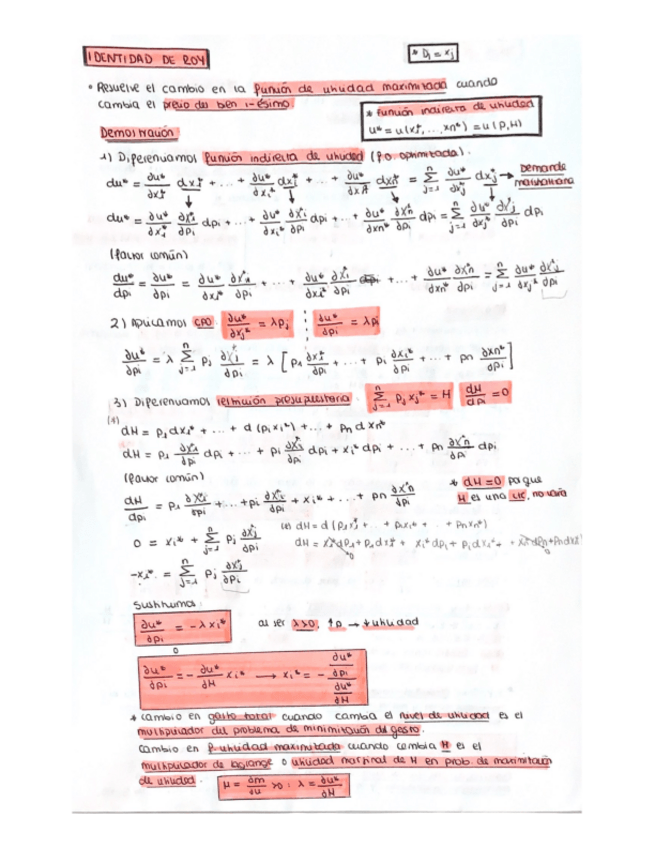 IDENTIDAD DE ROY
* Dj = xj
° Resuelve el cambio en la función de utilidad maximizada cuando
cambia el precio del bien i-ésimo.
* función indirecta de utilidad
u* = u(x1*, ..., xn*) = u(P,H)
Demostración
1) Diferenciamos función indirecta de utilidad (f.o. optimizada).
du* = ∂u*/∂x1* dx1* + ... + ∂u*/∂xi* dxi* + ... + ∂u*/∂xn* dxn* = Σ(j=1, n) ∂u*/∂xj* dxj* → Demanda marshalliana
du* = ∂u*/∂x1* ∂x1*/∂pi dpi + ... + ∂u*/∂xi* ∂xi*/∂pi dpi + ... + ∂u*/∂xn* ∂xn*/∂pi dpi = Σ(j=1, n) ∂u*/∂xj* ∂xj*/∂pi dpi
(factor común)
du*/dpi = ∂u*/∂pi = ∂u*/∂x1* ∂x1*/∂pi + ... + ∂u*/∂xi* ∂xi*/∂pi + ... + ∂u*/∂xn* ∂xn*/∂pi = Σ(j=1, n) ∂u*/∂xj* ∂xj*/∂pi
2) Aplicamos CPO ∂u*/∂xj* = λpj ∂u*/∂pi = λpi
∂u*/∂pi = λ Σ(j=1, n) pj ∂xj*/∂pi = λ [p1 ∂x1*/∂pi + ... + pi ∂xi*/∂pi + ... + pn ∂xn*/∂pi]
3) Diferenciamos restricción presupuestaria. Σ(j=1, n) pj xj* = H dH/dpi = 0
(*)
dH = p1 dx1* + ... + d(pi xi*) + ... + pn dxn*
dH = p1 ∂x1*/∂pi dpi + ... + pi ∂xi*/∂pi dpi + xi* dpi + ... + pn ∂xn*/∂pi dpi
(factor común)
dH/dpi = p1 ∂x1*/∂pi + ... + pi ∂xi*/∂pi + xi* + ... + pn ∂xn*/∂pi
* dH = 0 porque
H es una cte, no varía
0 = xi* + Σ(j=1, n) pj ∂xj*/∂pi
(*) dH = d(p1x1* + ... + pixi* + ... + pnxn*)
dH = x1*dp1 + p1dx1* + xi*dpi + pidxi* + + xn*dpn + pndxn*
-xi* = Σ(j=1, n) pj ∂xj*/∂pi
Sustituimos:
∂u*/∂pi = -λxi* al ser λ>0, ↑p → ↓utilidad
∂u*/∂pi = - ∂u*/∂H xi* → xi* = - (∂u*/∂pi)/(∂u*/∂H)
* Cambio en gasto total cuando cambia el nivel de utilidad es el
multiplicador del problema de minimización del gasto.
Cambio en f. utilidad maximizada cuando cambia H es el
multiplicador de lagrange o utilidad marginal de H en prob. de maximización
de utilidad. H = ∂m/∂u >0 ; λ = ∂u*/∂H